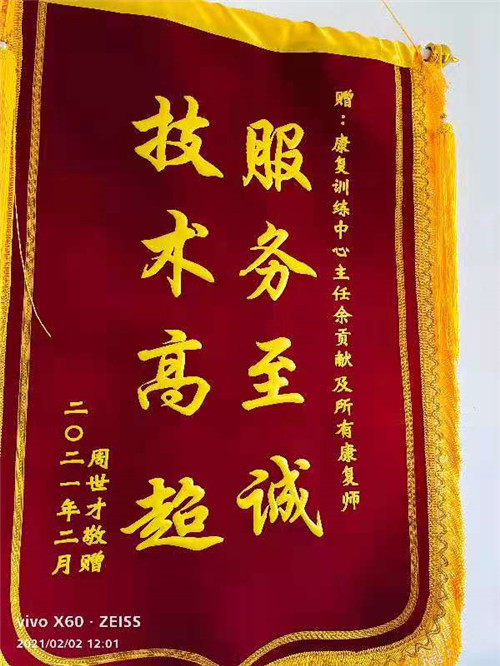 赠：康复训练中心主任余贡献及所有康复师
服务至诚
技术高超
周世才敬赠
二〇二一年二月
vivo X60 · ZEISS
2021/02/02 12:01